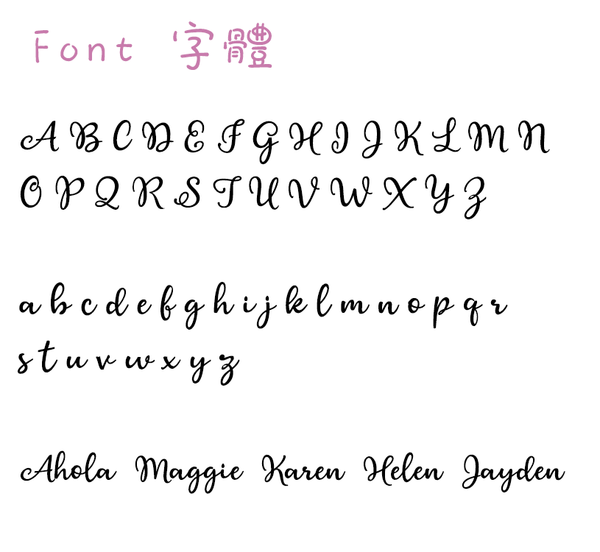 Font 字體
A B C D E F G H I J K L M N
O P Q R S T U V W X Y Z
a b c d e f g h i j k l m n o p q r
s t u v w x y z
Ahola Maggie Karen Helen Jayden